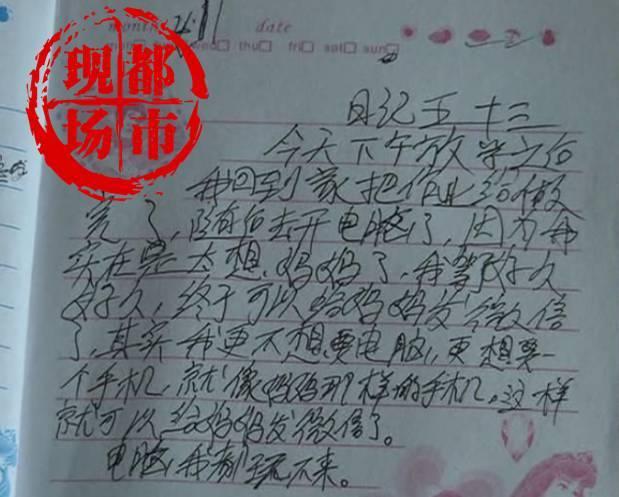 month
date
wed□ thu□ fri□ sat□ sun□
都市现场
日记五十三
今天下午放学之后
我回到家把作业给做
完了,随后去开电脑了,因为我
实在是太想妈妈了,我等了好久
好久,终于可以给妈妈发微信
了,其实我更不想要电脑,更想要一
个手机,就像妈妈那样的手机,这样
就可以给妈妈发微信了。
电脑我都玩不来。